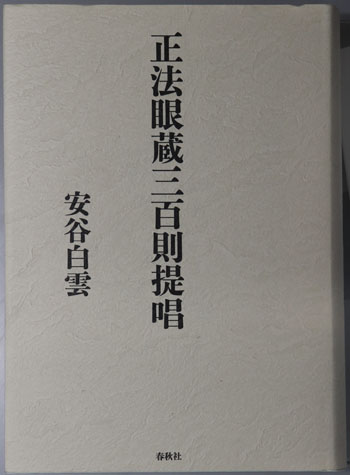 正法眼蔵三百則提唱
安谷白雲
春秋社